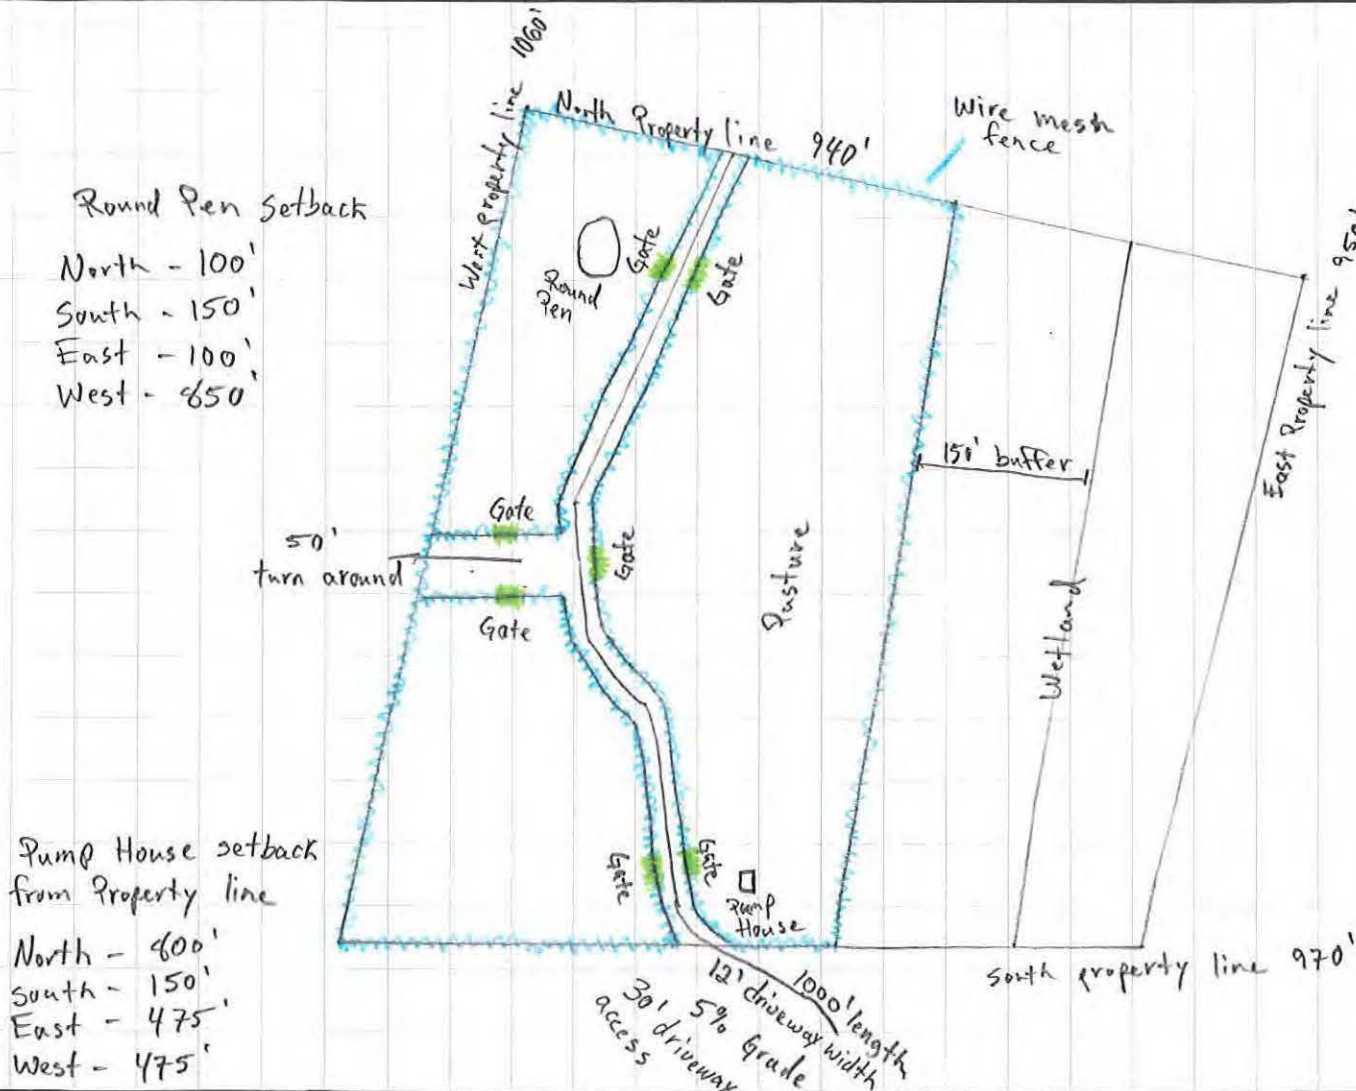 West property line 1060'
North Property line 940'
Wire mesh
fence
Round Pen setback
North - 100'
South - 150'
East - 100'
West - 850'
Round
Pen
Gate
Gate
East Property line 950'
150' buffer
Gate
50'
turn around
Gate
Gate
Pasture
Wetland
Pump House setback
from Property line
North - 800'
South - 150'
East - 475'
West - 475'
Gate
Gate
Pump
House
South property line 970'
1000' length
12' driveway width
5% Grade
30' driveway
access